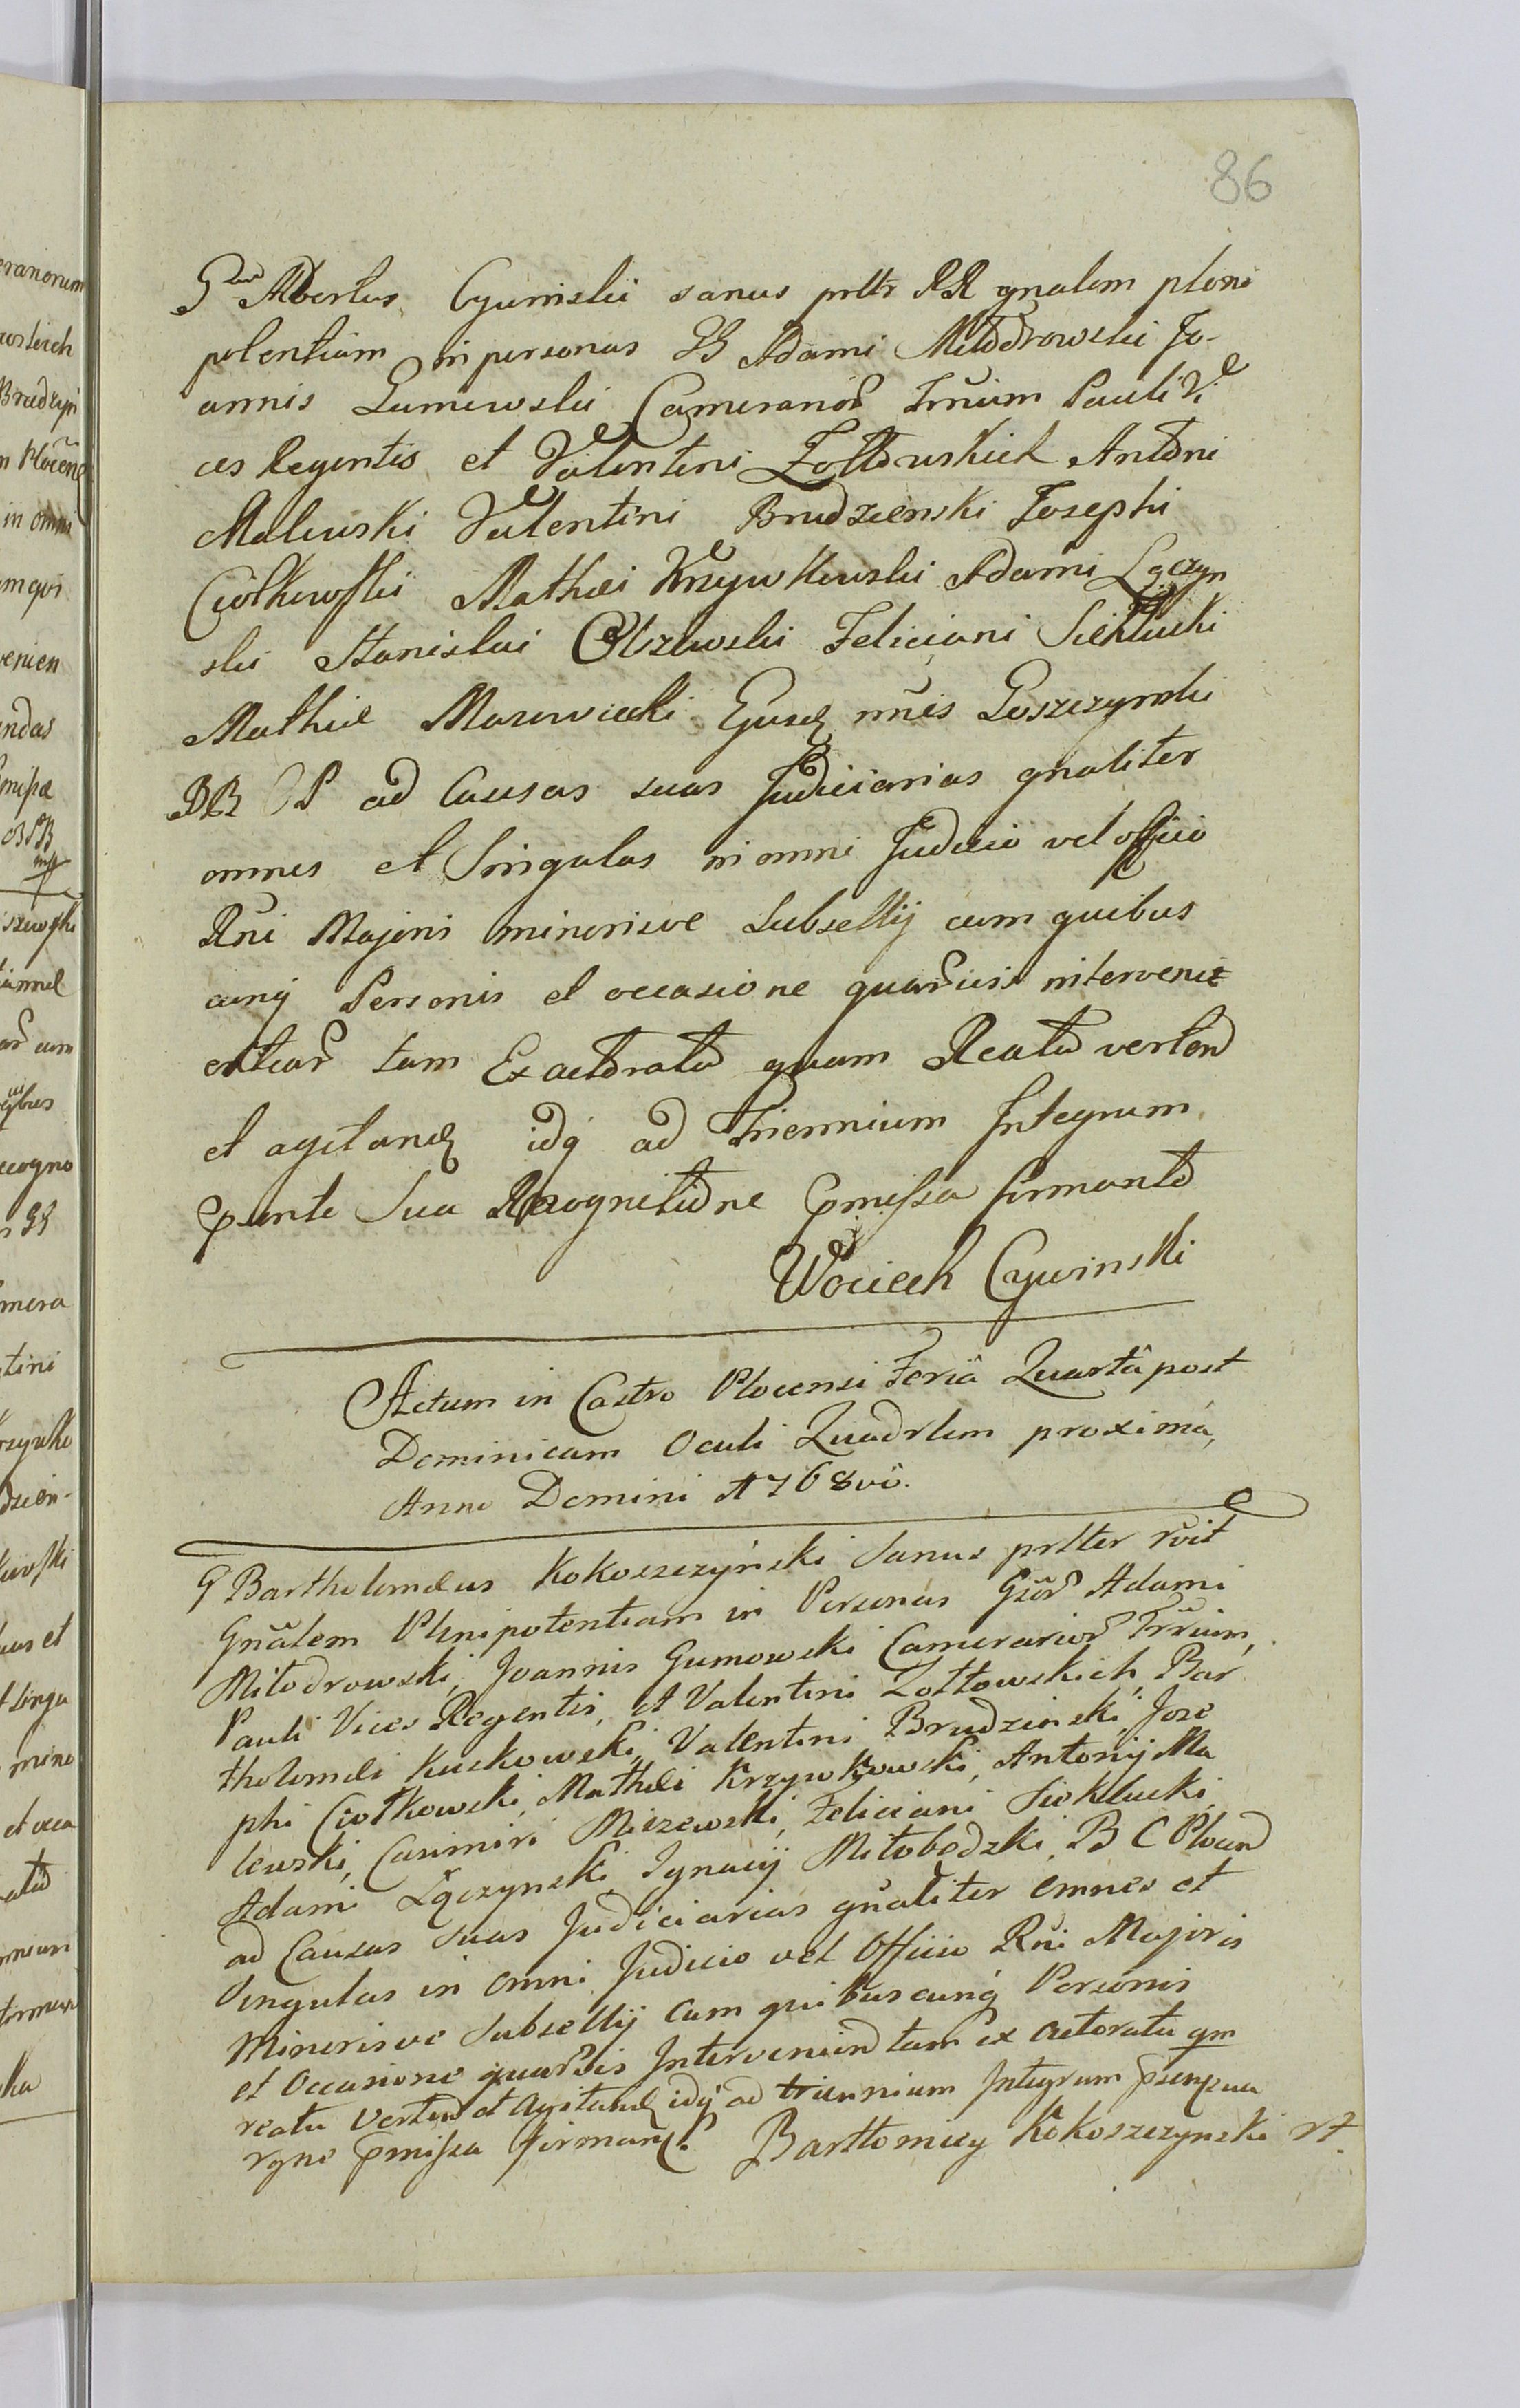 86
Gsus Albertus Cywinski sanus prltr RR gnalem pleni
potentiam in personas GG Adami Miłodrowski Jo-
annis Gumowski Camerarior Trrium Pauli Vi
ces Regentis et Valentini Żołtowskich Antoni
Malewski Valentini Brudzienski Josephi
Ciołkowski Mathei Krzywkowski Adami Łączyn
ski Stanislai Olszewski Feliciani Sieklucki
Mathiæ Mazowiecki Ejusd nnis Goszczynski
BB CP ad Causas suas Judiciarias gnaliter
omnes et Singulas in omni Judicio vel officio
Rni Majoris minorisve Subsellij cum quibus
cunq Personis et occasione quarvis interveni
entiar tam Ex actoratu quam Reatu verten
et agitand idq ad Triennium Integrum
psente Sua Recognitione pmissa firmante
Wociech Cywinski
Actum in Castro Plocensi Feriâ Quartâ post
Dominicam Oculi Quadrlem proximâ,
Anno Domini 1768vô.
G Bartholomæus Kokoszczyński Sanus prltter rvit
Gnâlem Plenipotentiam in Personas Gsor Adami
Miłodrowski, Joannis Gumowski Camerarior Trrium,
Pauli Vices Regentis, et Valentini Zołtowskich, Bar
tholomæi Kuskowski, Valentini Brudzinski, Jose
phi Ciołkowski, Mathæi Krzywkowski, Antonij Ma
lewski, Casimiri Miszewski, Feliciani Sieklucki,
Adami Łączynski Ignacij Miłobędzki, B C Plocen
ad Causas Suas Judiciarias gnâliter omnes et
Singulas in omni Judicio vel Officio Rni Majoris
Minorisve Subsellij cum quibuscunq Personis
et Occasione quarvis Intervenien tam ex actoratu qm
reatu Verten et Agitand idq ad triennium Integrum psen sua
rgne pmissa firman. Bartłomiey Kokoszczynski